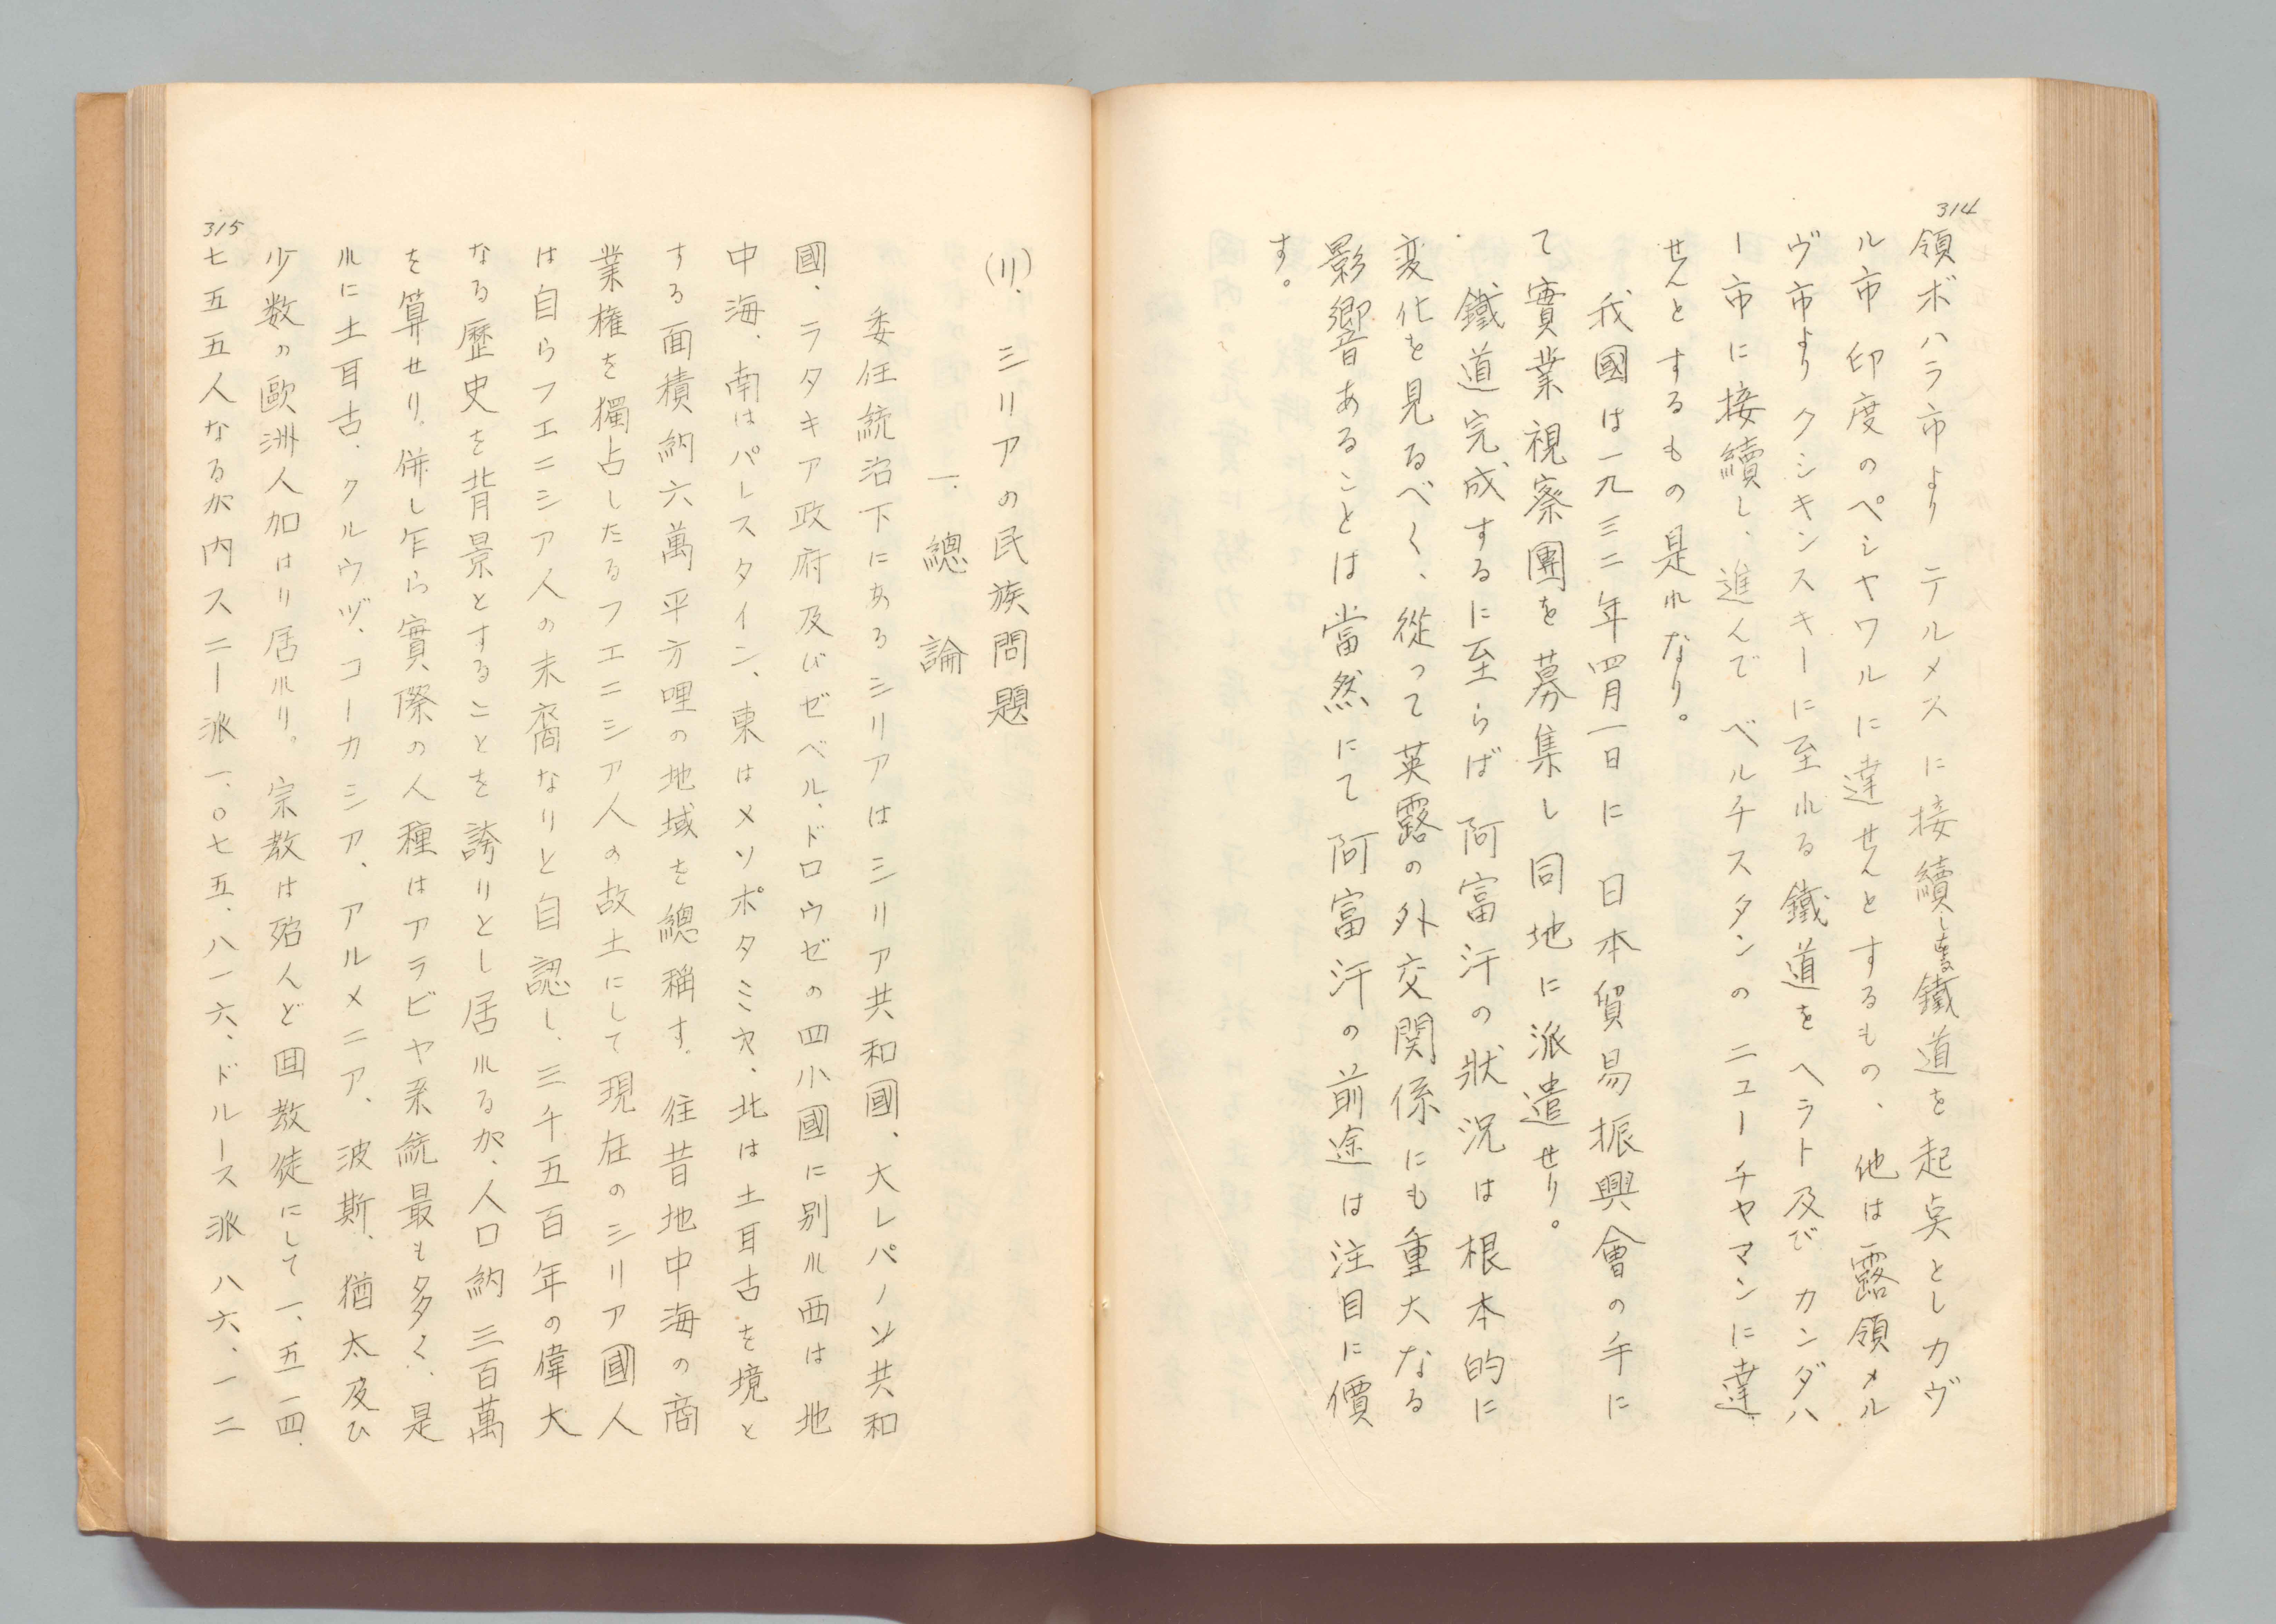 314
領ボハラ市より テルメスに接續しある鐵道を起点としカヴ
ル市 印度のペシヤワルに達せんとするもの、他は露領メル
ヴ市よりクシキンスキーに至れる鐵道をヘラト及び カンダハ
ー市に接續し、進んで ベルチスタンの ニューチヤマンに達
せんとするもの是れなり。
我國は一九三二年四月一日に 日本貿易振興會の手に
て實業視察團を募集し同地に派遣せり。
鐵道完成するに至らば 阿富汗の狀況は根本的に
変化を見るべく、從って英露の外交関係にも重大なる
影響あることは當然にて阿富汗の前途は注目に價
す。
(リ)、シリアの民族問題
一、總論
委任統治下にあるシリアはシリア共和國、大レバノン共和
國、ラタキア政府及びゼベル、ドロウゼの四小國に別れ西は地
中海、南はパレスタイン、東はメソポタミヤ、北は土耳古を境と
する面積約六萬平方哩の地域を總稱す。往昔地中海の商
業権を獨占したるフエニシア人の故土にして現在のシリア國人
は自らフエニシア人の末裔なりと自認し、三千五百年の偉大
なる歷史を背景とすることを誇りとし居れるが、人口約三百萬
を算せり。併し乍ら實際の人種はアラビヤ系統最も多く、是
れに土耳古、クルウヅ、コーカシア、アルメニア、波斯、猶太及ひ
少数の歐洲人加はり居れり。宗教は殆んど回教徒にして一、五一四、
七五五人なるが内スニー派一、〇七五、八一六、ドルース派八六、一二
315